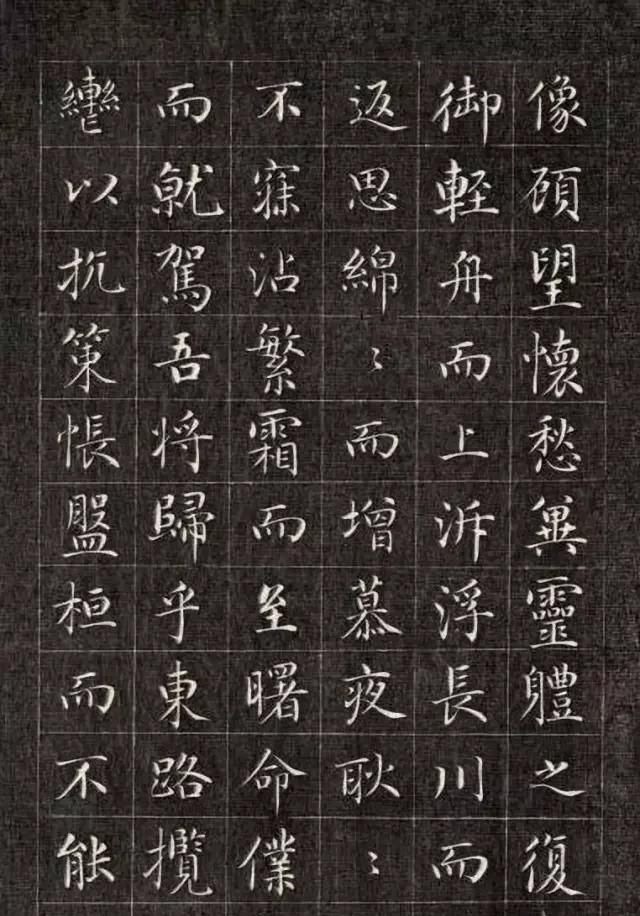 像顧望懷愁冀靈體之復
御輕舟而上泝浮長川而
返思綿〻而增慕夜耿〻
不寐沾繁霜而至曙命僕
而就駕吾将歸乎東路攬
轡以抗策悵盤桓而不能